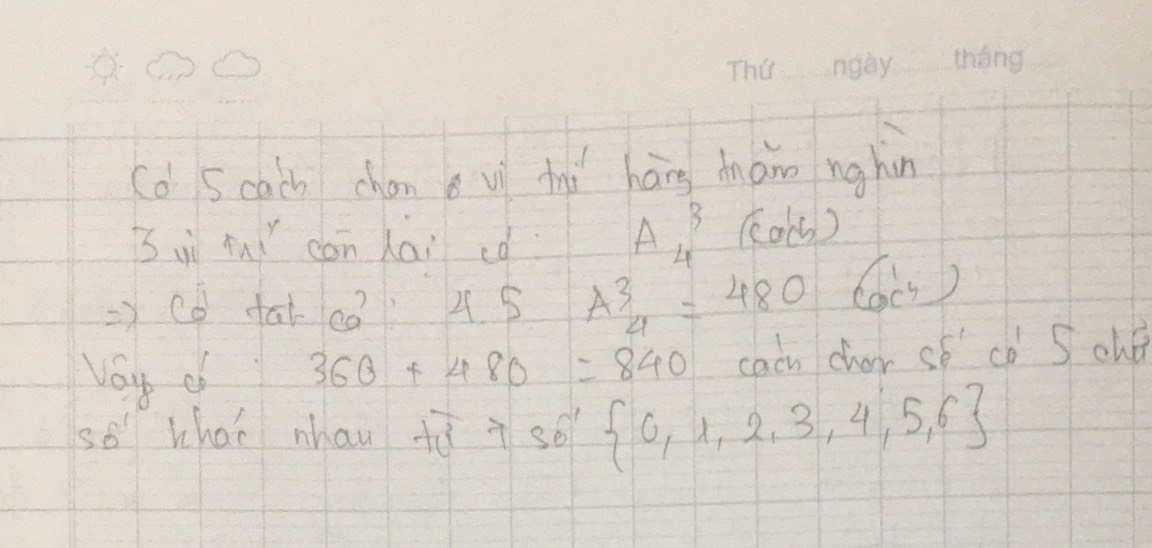 Thứ ngày tháng
Có 5 cách chọn vị trí hàng trăm nghìn
3 vị trí còn lại có: A₄³ (cách)
=> Có tất cả: 4.5 A³₄ = 480 (cách)
Vậy có: 360 + 480 = 840 cách chọn số có 5 chữ
số khác nhau từ 7 số {0, 1, 2, 3, 4, 5, 6}